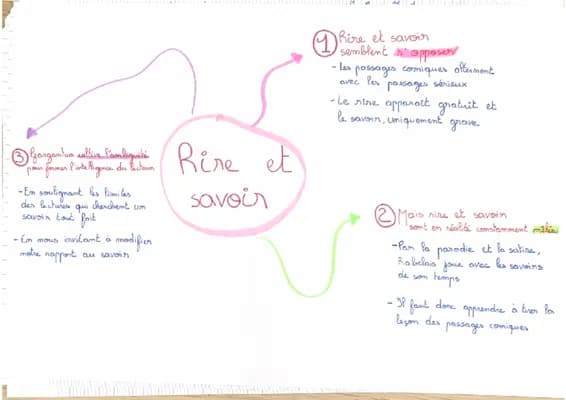 Rire et
savoir
① Rire et savoir
semblent s'opposer
- Les passages comiques alternent
avec les passages sérieux
- Le rire apparaît gratuit et
le savoir, uniquement grave
② Mais rire et savoir
sont en réalité constamment mêlés
- Par la parodie et la satire,
Rabelais joue avec les savoirs
de son temps
- Il faut donc apprendre à tirer la
leçon des passages comiques
③ Gargantua cultive l'ambiguïté
pour former l'intelligence du lecteur
- En soulignant les limites
des lectures qui cherchent un
savoir tout fait
- En nous invitant à modifier
notre rapport au savoir